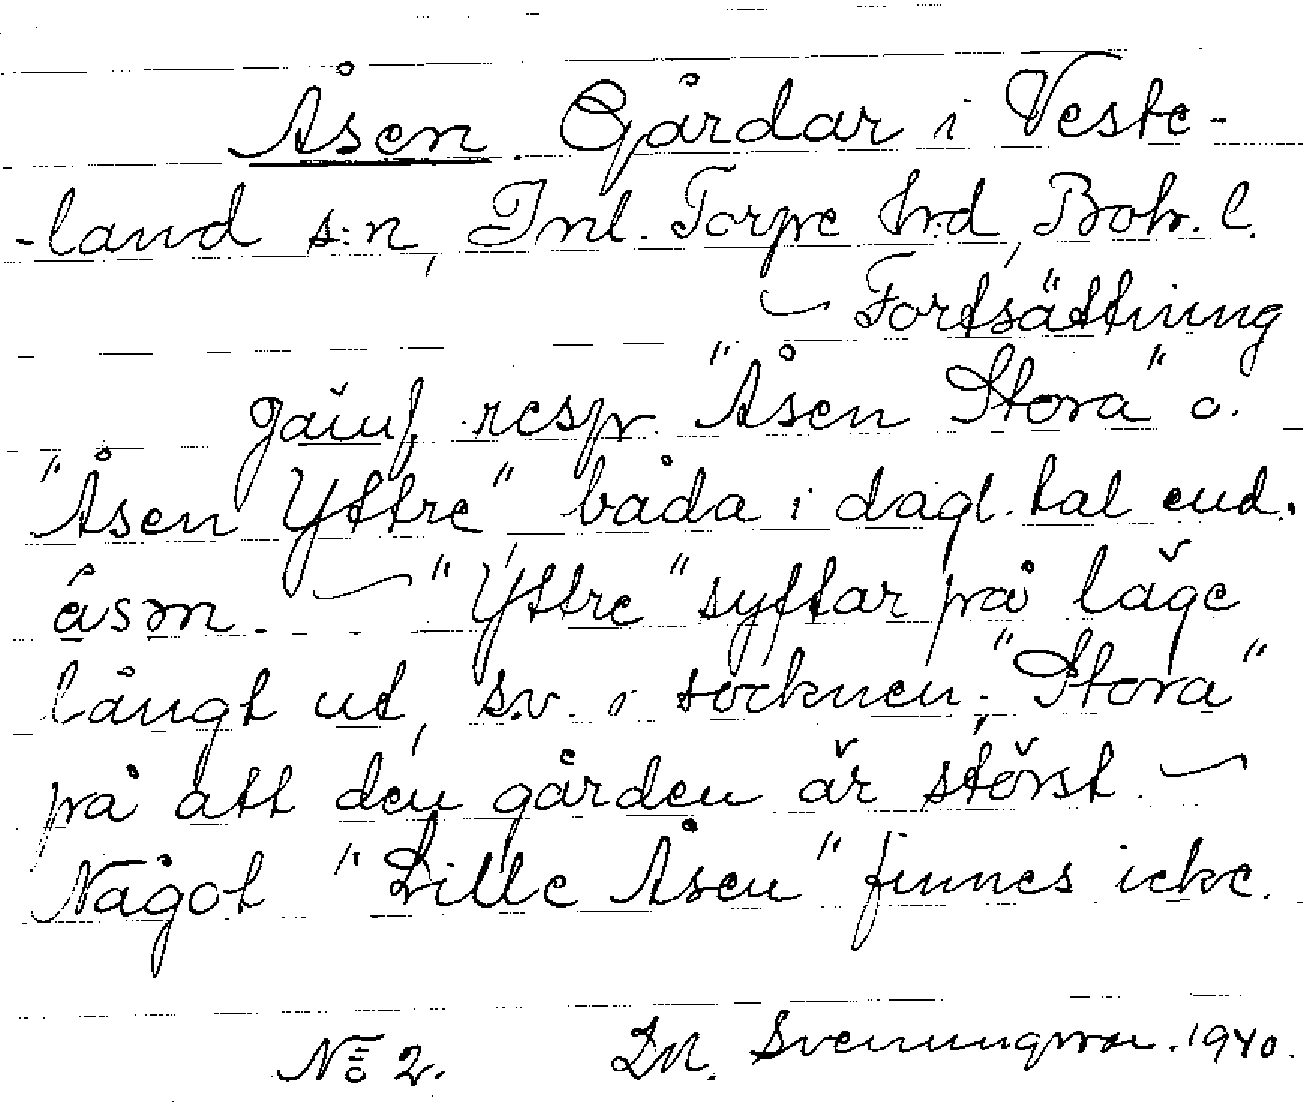 Åsen. Gårdar i Veste-
-land s:n, Inl. Torpe hrd, Boh. l.
— Fortsättning
gäuf. resp. "Åsen Stora" o.
"Åsen Yttre" båda i dagl. tal end.
åsm. — "Yttre" syftar på läge
långt ut, s.v. i socknen; "Stora"
på att den gården är störst. —
Något "Lille Åsen" finnes icke.
No 2. Dn. Svenungsson. 1940.